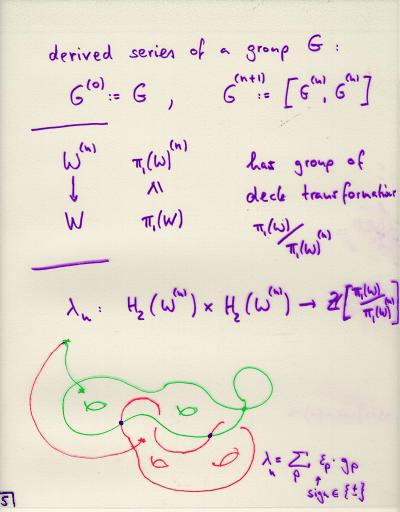 derived series of a group G :
G^(0) := G , G^(n+1) := [G^(n), G^(n)]
W^(n) π₁(W)^(n) has group of
↓ ∧| deck transformations
W π₁(W) π₁(W)/π₁(W)^(n)
λₙ : H₂(W^(n)) × H₂(W^(n)) → ℤ[π₁(W)/π₁(W)^(n)]
λₙ = Σ_p ε_p · g_p
↑
sign ∈ {±}
5